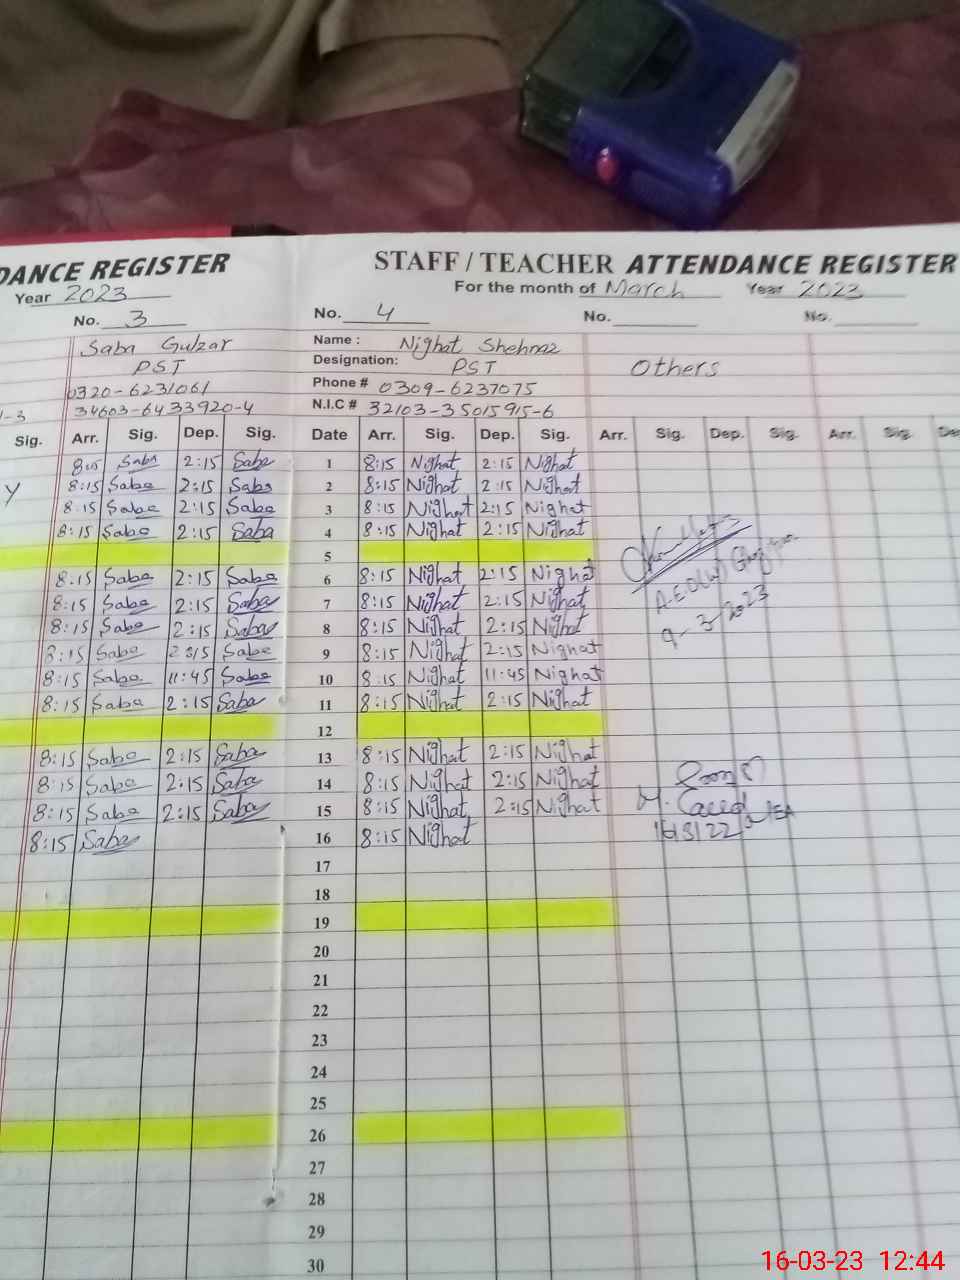 DANCE REGISTER STAFF / TEACHER ATTENDANCE REGISTER
Year 2023 For the month of March Year 2023
No. 3 No. 4 No. No.
Saba Gulzar Name : Nighat Shehnaz
PST Designation: PST Others
0320-6231061 Phone # 0309-6237075
1-3 34603-6433920-4 N.I.C # 32103-35015915-6
Sig. Arr. Sig. Dep. Sig. Date Arr. Sig. Dep. Sig. Arr. Sig. Dep. Sig. Arr. Sig. De
8:15 Saba 2:15 Saba 1 8:15 Nighat 2:15 Nighat
y 8:15 Saba 2:15 Saba 2 8:15 Nighat 2:15 Nighat
8:15 Saba 2:15 Saba 3 8:15 Nighat 2:15 Nighat
8:15 Saba 2:15 Saba 4 8:15 Nighat 2:15 Nighat
5
8:15 Saba 2:15 Saba 6 8:15 Nighat 2:15 Nighat
8:15 Saba 2:15 Saba 7 8:15 Nighat 2:15 Nighat
8:15 Saba 2:15 Saba 8 8:15 Nighat 2:15 Nighat
8:15 Saba 2:15 Saba 9 8:15 Nighat 2:15 Nighat
8:15 Saba 11:45 Saba 10 8:15 Nighat 11:45 Nighat
8:15 Saba 2:15 Saba 11 8:15 Nighat 2:15 Nighat
12
8:15 Saba 2:15 Saba 13 8:15 Nighat 2:15 Nighat
8:15 Saba 2:15 Saba 14 8:15 Nighat 2:15 Nighat
8:15 Saba 2:15 Saba 15 8:15 Nighat 2:15 Nighat
8:15 Saba 16 8:15 Nighat
17
18
19
20
21
22
23
24
25
26
27
28
29
30
A.E.O(W)
9-3-2023
M. Saeed
16-03-23 12:44